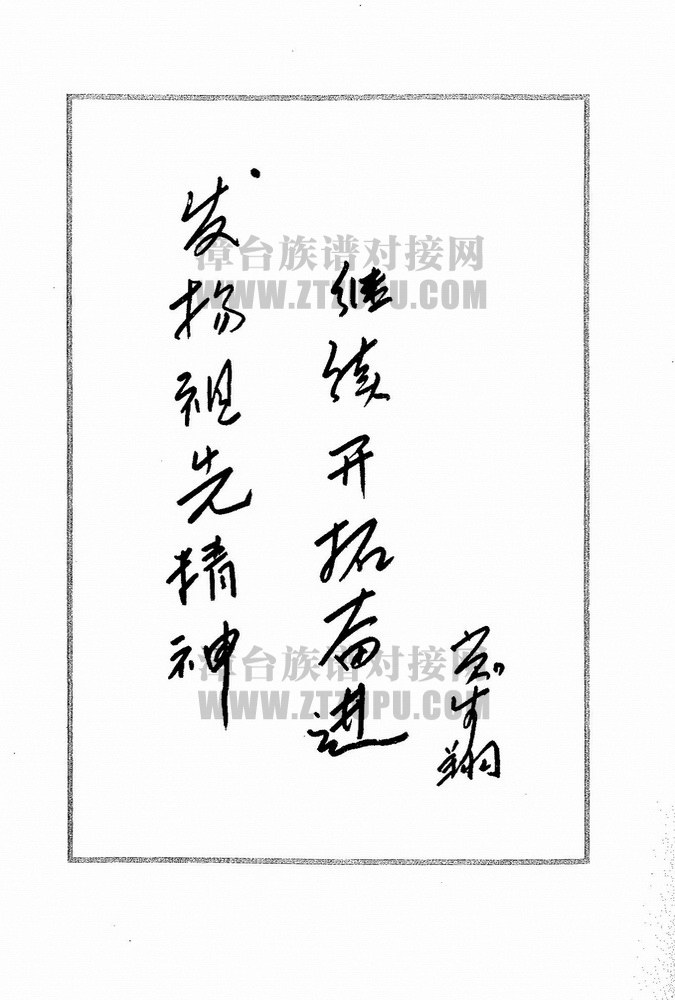 发扬祖先精神
继续开拓奋进
漳台族谱对接网
WWW.ZTZUPU.COM
漳台族谱对接网
WWW.ZTZUPU.COM